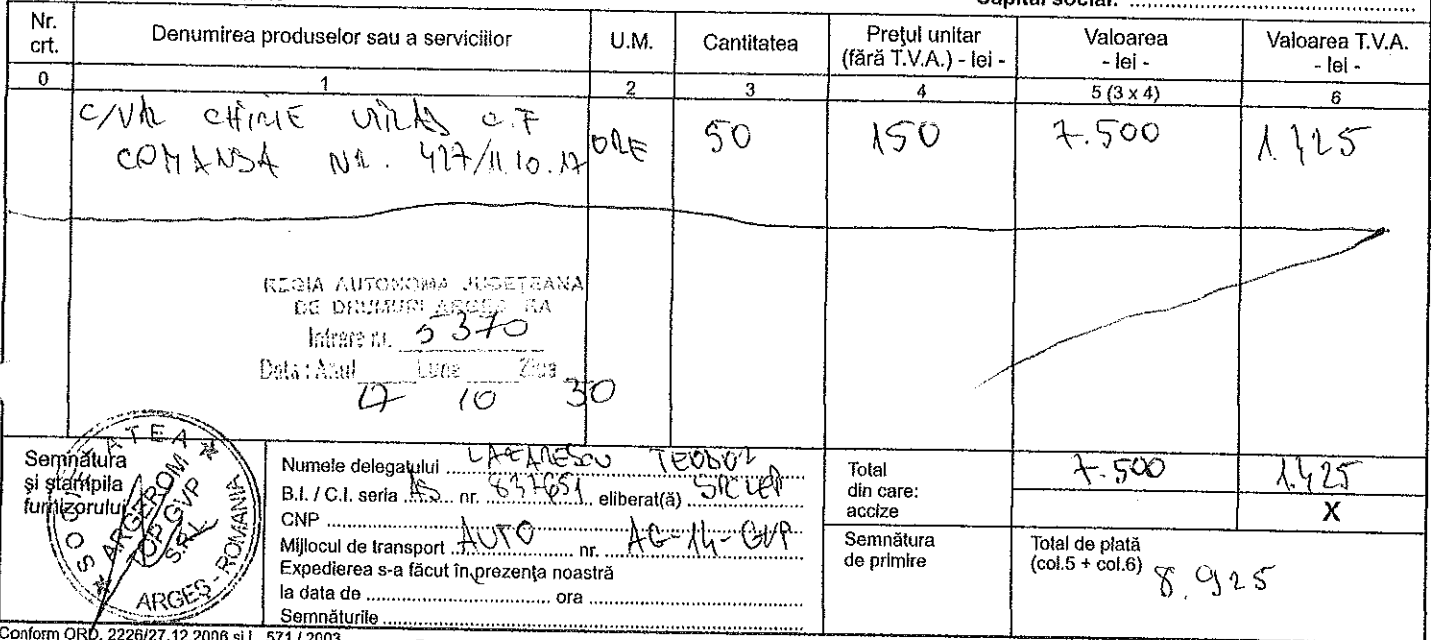 Capital social: ..........
Nr. crt.
Denumirea produselor sau a serviciilor
U.M.
Cantitatea
Preţul unitar
(fără T.V.A.) - lei -
Valoarea
- lei -
Valoarea T.V.A.
- lei -
0 1 2 3 4 5 (3 x 4) 6
C/VAL CHIRIE UTILAJ C.F ORE 50 150 7.500 1.425
COMANDA NR. 427/11.10.17
REGIA AUTONOMA JUDEŢEANA
DE DRUMURI ARGEŞ RA
Intrare nr. 5370
Data : Anul Luna Ziua
17 10 30
Semnătura
şi ştampila
furnizorului
SOCIETATEA
ARGEROM
TOP GVP
S.R.L.
ARGEŞ - ROMANIA
Numele delegatului LAZARESCU TEODOR
B.I. / C.I. seria AS nr. 837651 eliberat(ă) SPCLEP
CNP ..........
Mijlocul de transport AUTO nr. AG-14-GVP
Expedierea s-a făcut în prezenţa noastră
la data de .......... ora ..........
Semnăturile ..........
Total
din care:
accize
7.500 1.425
X
Semnătura
de primire
Total de plată
(col.5 + col.6) 8.925
Conform ORD. 2226/27.12.2006 şi L. 571 / 2003